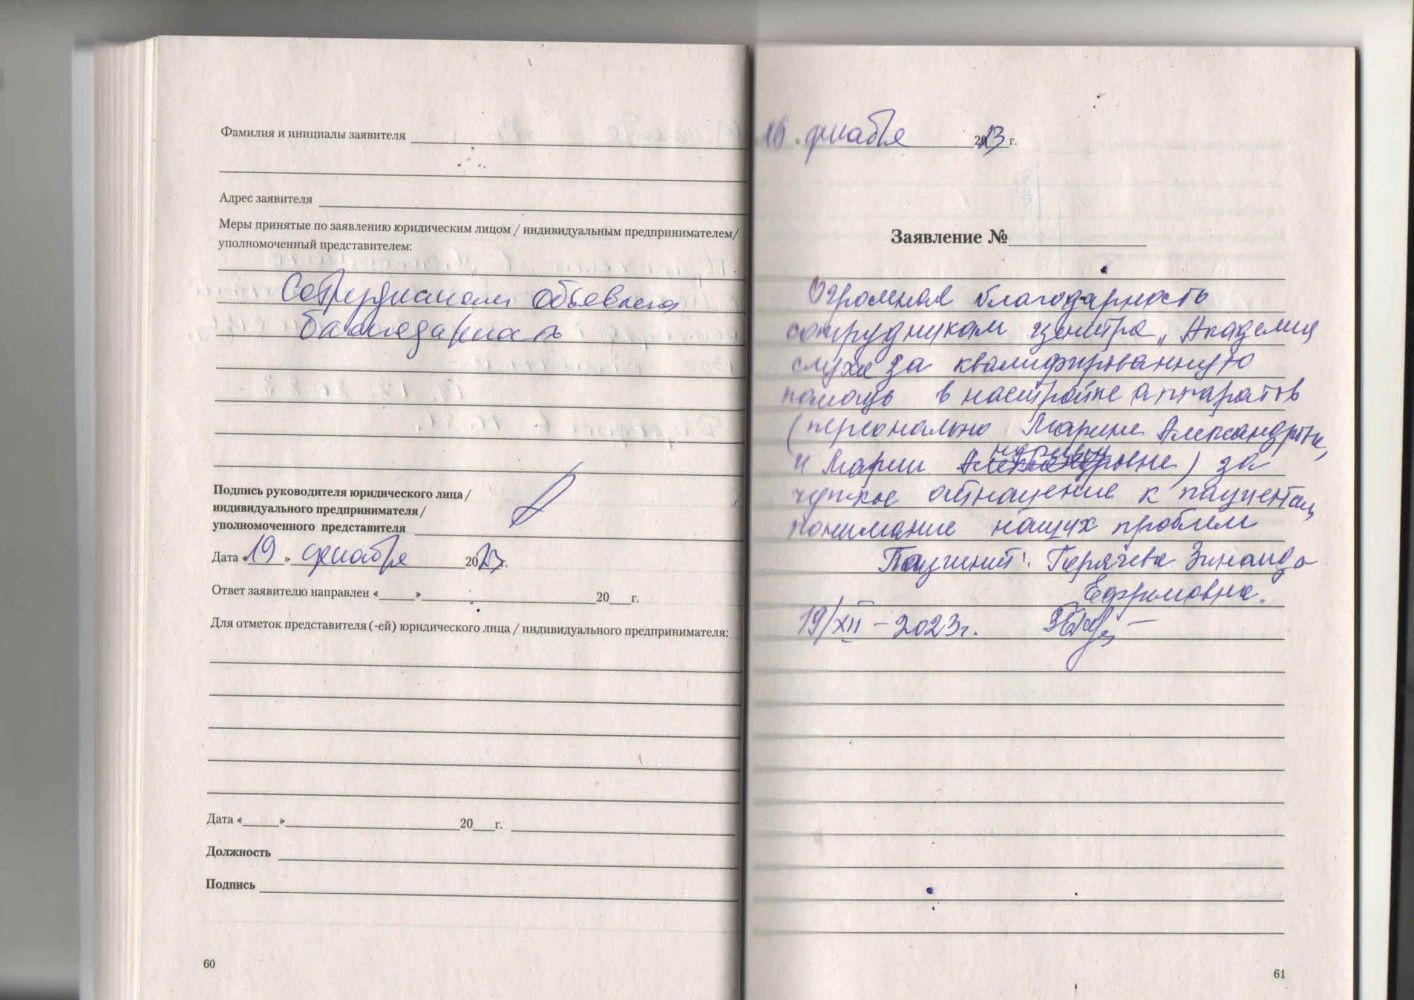 Фамилия и инициалы заявителя
Адрес заявителя
Меры принятые по заявлению юридическим лицом / индивидуальным предпринимателем/
уполномоченный представителем:
Сотрудникам объявлена
благодарность
Подпись руководителя юридического лица /
индивидуального предпринимателя /
уполномоченного представителя
Дата «19» декабря 2023г.
Ответ заявителю направлен «____»____________20___г.
Для отметок представителя (-ей) юридического лица / индивидуального предпринимателя:
Дата «____»____________20___г.
Должность
Подпись
60
декабря 2023 г.
Заявление №
Огромная благодарность
сотрудникам центра „Академия
слуха за квалифированную
помощь в настройке аппаратов
(персонально Марине Александровне,
и Марии) за
чуткое отношение к пациентам,
понимание наших проблем
Пациент: Горячева Зинаида
Ефимовна.
19/XII – 2023г.
61